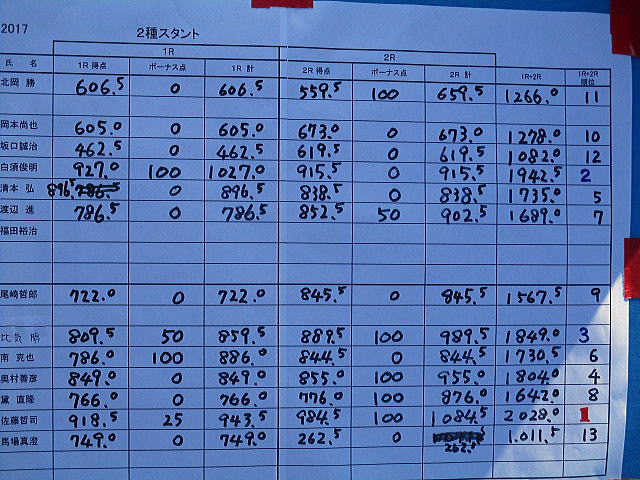 2017 2種スタント
1R 2R
氏 名 1R 得点 ボーナス点 1R 計 2R 得点 ボーナス点 2R 計 1R+2R 1R+2R 順位
北岡 勝 606.5 0 606.5 559.5 100 659.5 1266.0 11
岡本尚也 605.0 0 605.0 673.0 0 673.0 1278.0 10
坂口誠治 462.5 0 462.5 619.5 0 619.5 1082.0 12
白須俊明 927.0 100 1027.0 915.5 0 915.5 1942.5 2
清本 弘 896.5 786.5 0 896.5 838.5 0 838.5 1735.0 5
渡辺 進 786.5 0 786.5 852.5 50 902.5 1689.0 7
福田裕治
尾崎哲郎 722.0 0 722.0 845.5 0 845.5 1567.5 9
809.5 50 859.5 889.5 100 989.5 1849.0 3
南 克也 786.0 100 886.0 844.5 0 844.5 1730.5 6
奥村善彦 849.0 0 849.0 855.0 100 955.0 1804.0 4
黛 直隆 766.0 0 766.0 776.0 100 876.0 1642.0 8
佐藤哲司 918.5 25 943.5 984.5 100 1084.5 2028.0 1
馬場真澄 749.0 0 749.0 262.5 0 262.5 1.011.5 13